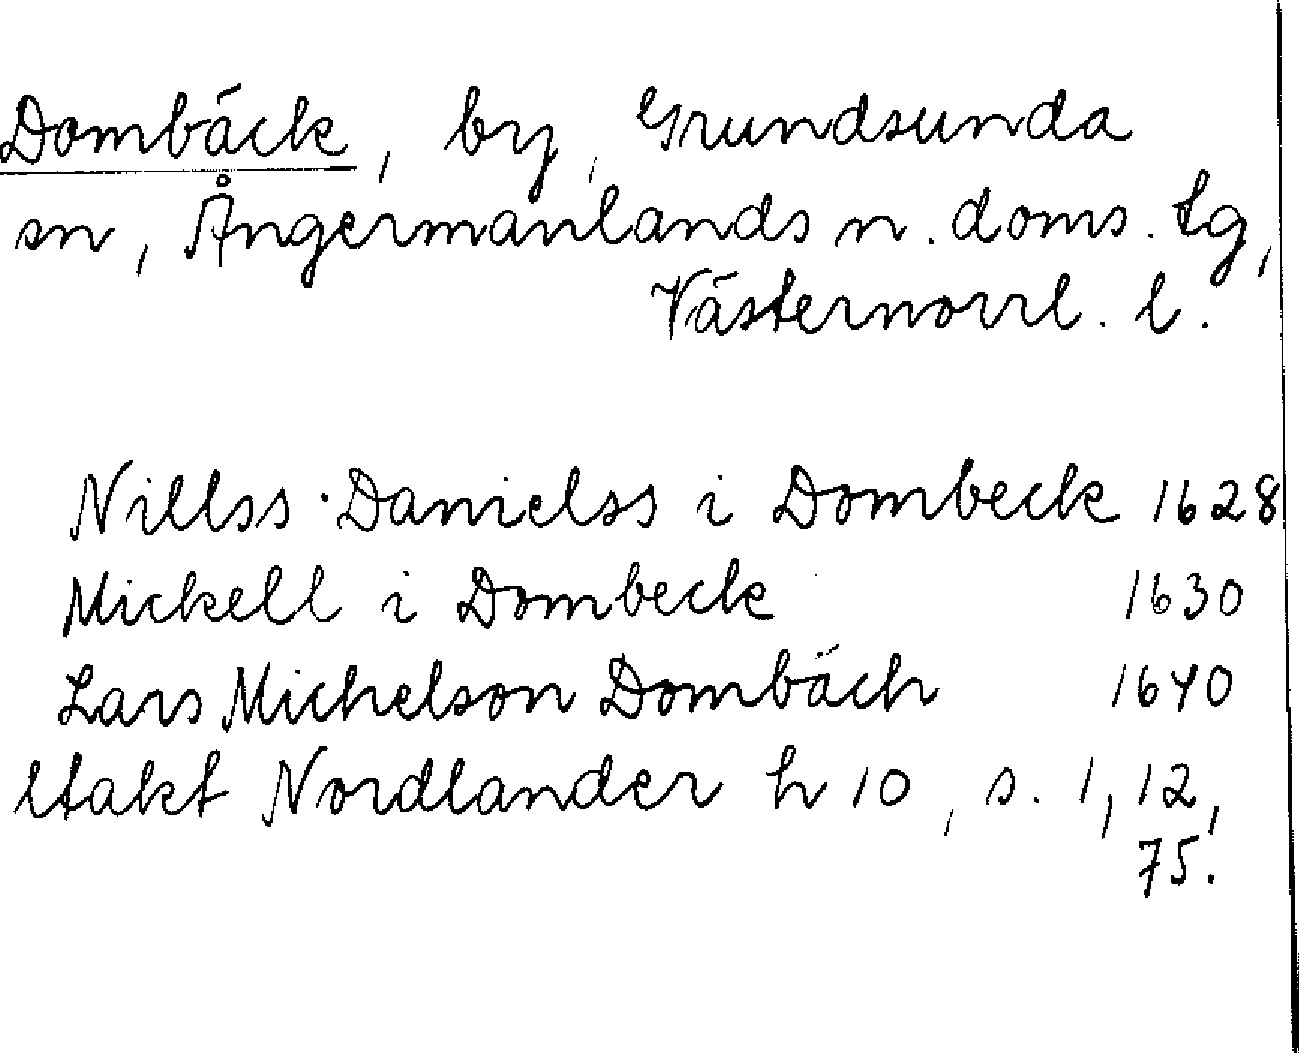 Dombäck, by, Grundsunda
sn, Ångermanlands n. doms. tg,
Västernorrl. l.
Nillss Danielss i Dombeck 1628
Mickell i Dombeck 1630
Lars Michelson Dombäch 1640
Utakt Nordlander h 10, s. 1, 12,
75.